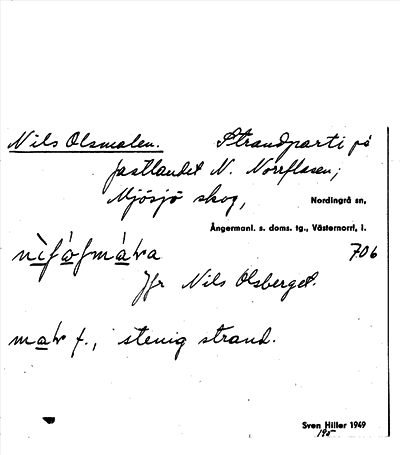 Nils Olsmalen. Strandparti på
fastlandet N. Norrflasen;
Mjösjö skog, Nordingrå sn,
Ångermanl. s. doms. tg., Västernorrl. l.
706
Jfr Nils Olsberget.
mar f., stenig strand.
Sven Hiller 1949